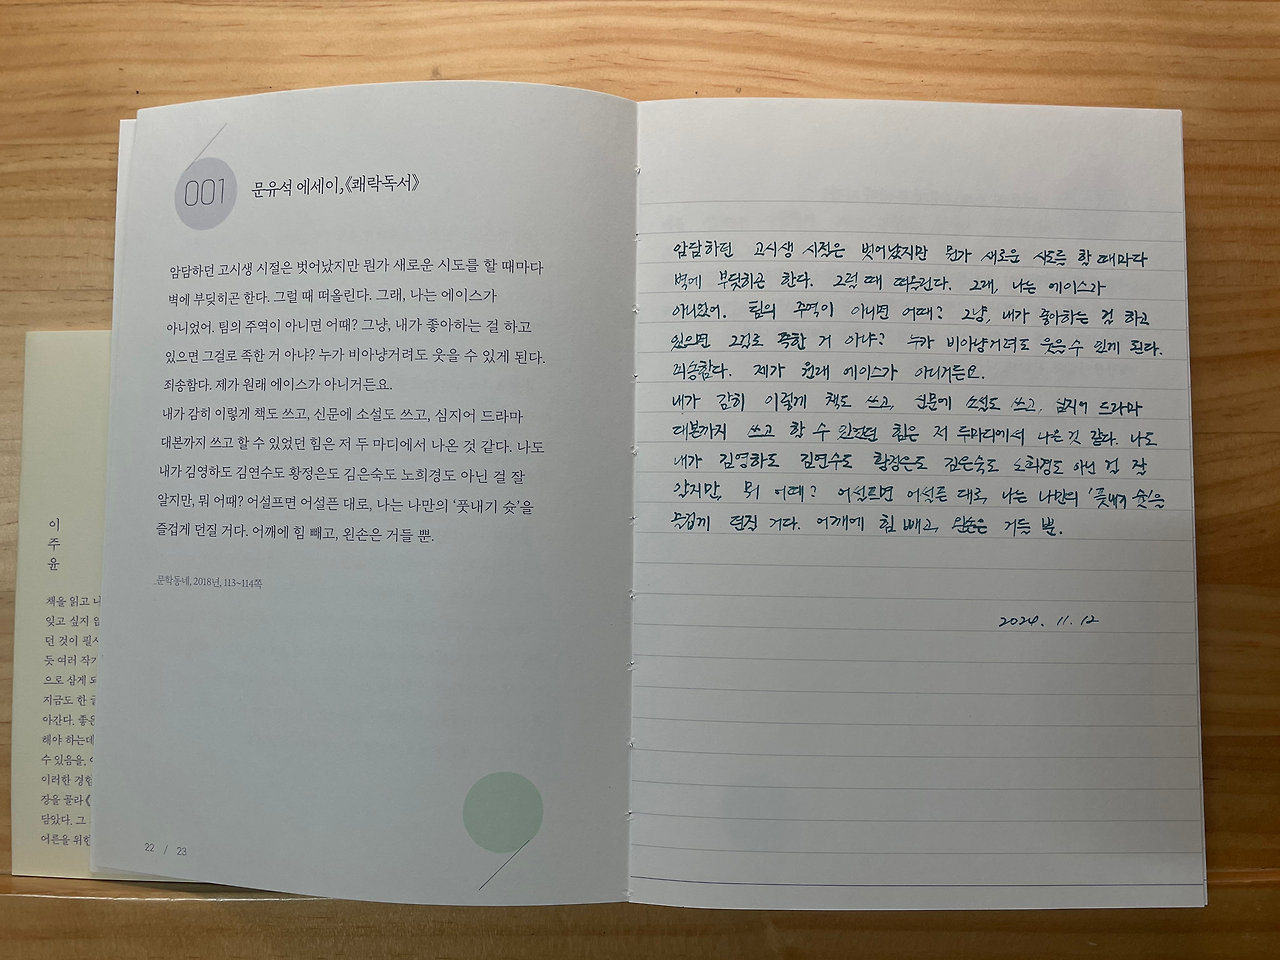 001
문유석 에세이,《쾌락독서》
암담하던 고시생 시절은 벗어났지만 뭔가 새로운 시도를 할 때마다
벽에 부딪히곤 한다. 그럴 때 떠올린다. 그래, 나는 에이스가
아니었어. 팀의 주역이 아니면 어때? 그냥, 내가 좋아하는 걸 하고
있으면 그걸로 족한 거 아냐? 누가 비아냥거려도 웃을 수 있게 된다.
죄송함다. 제가 원래 에이스가 아니거든요.
내가 감히 이렇게 책도 쓰고, 신문에 소설도 쓰고, 심지어 드라마
대본까지 쓰고 할 수 있었던 힘은 저 두 마디에서 나온 것 같다. 나도
내가 김영하도 김연수도 황정은도 김은숙도 노희경도 아닌 걸 잘
알지만, 뭐 어때? 어설프면 어설픈 대로, 나는 나만의 ‘풋내기 슛’을
즐겁게 던질 거다. 어깨에 힘 빼고, 왼손은 거들 뿐.
_문학동네, 2018년, 113~114쪽
22 / 23
암담하던 고시생 시절은 벗어났지만 뭔가 새로운 시도를 할 때마다
벽에 부딪히곤 한다. 그럴 때 떠올린다. 그래, 나는 에이스가
아니었어. 팀의 주역이 아니면 어때? 그냥, 내가 좋아하는 걸 하고
있으면 그걸로 족한 거 아냐? 누가 비아냥거려도 웃을 수 있게 된다.
죄송함다. 제가 원래 에이스가 아니거든요.
내가 감히 이렇게 책도 쓰고, 신문에 소설도 쓰고, 심지어 드라마
대본까지 쓰고 할 수 있었던 힘은 저 두마디에서 나온 것 같다. 나도
내가 김영하도 김연수도 황정은도 김은숙도 노희경도 아닌 걸 잘
알지만, 뭐 어때? 어설프면 어설픈 대로, 나는 나만의 '풋내기 슛'을
즐겁게 던질 거다. 어깨에 힘 빼고, 왼손은 거들 뿐.
2024. 11. 12
이
주
윤
책을 읽고 나
잊고 싶지 않
던 것이 필사
듯 여러 작가
으로 삼게 되
지금도 한 글
아간다. 좋은
해야 하는데
수 있음을,
이러한 경험
장을 골라《
담았다. 그
어른을 위한